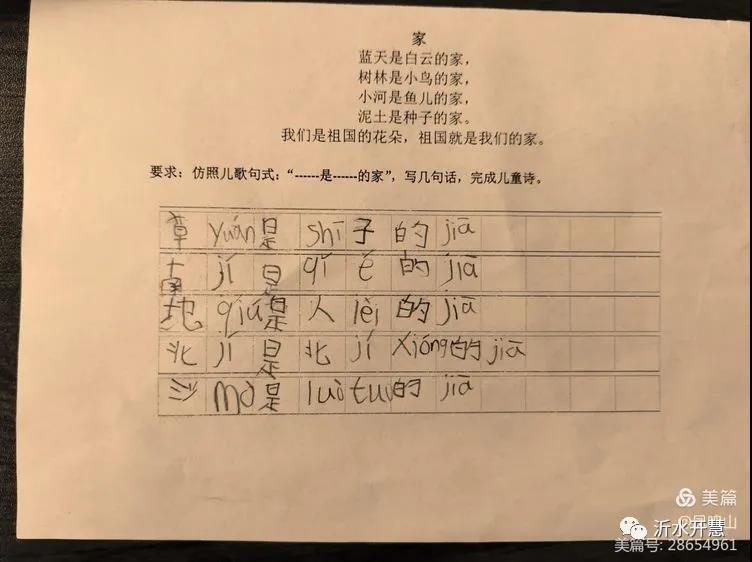 家
蓝天是白云的家，
树林是小鸟的家，
小河是鱼儿的家，
泥土是种子的家。
我们是祖国的花朵，祖国就是我们的家。
要求：仿照儿歌句式：“------是------的家”，写几句话，完成儿童诗。
草 yuán是 shī子的 jiā
南 jí 是 qǐ é 的 jiā
地 qiú是 人 lèi 的 jiā
北 jí 是 北 jí xióng的 jiā
沙 mò是 luò tuó的 jiā
美篇
沂水开慧
美篇号: 28654961